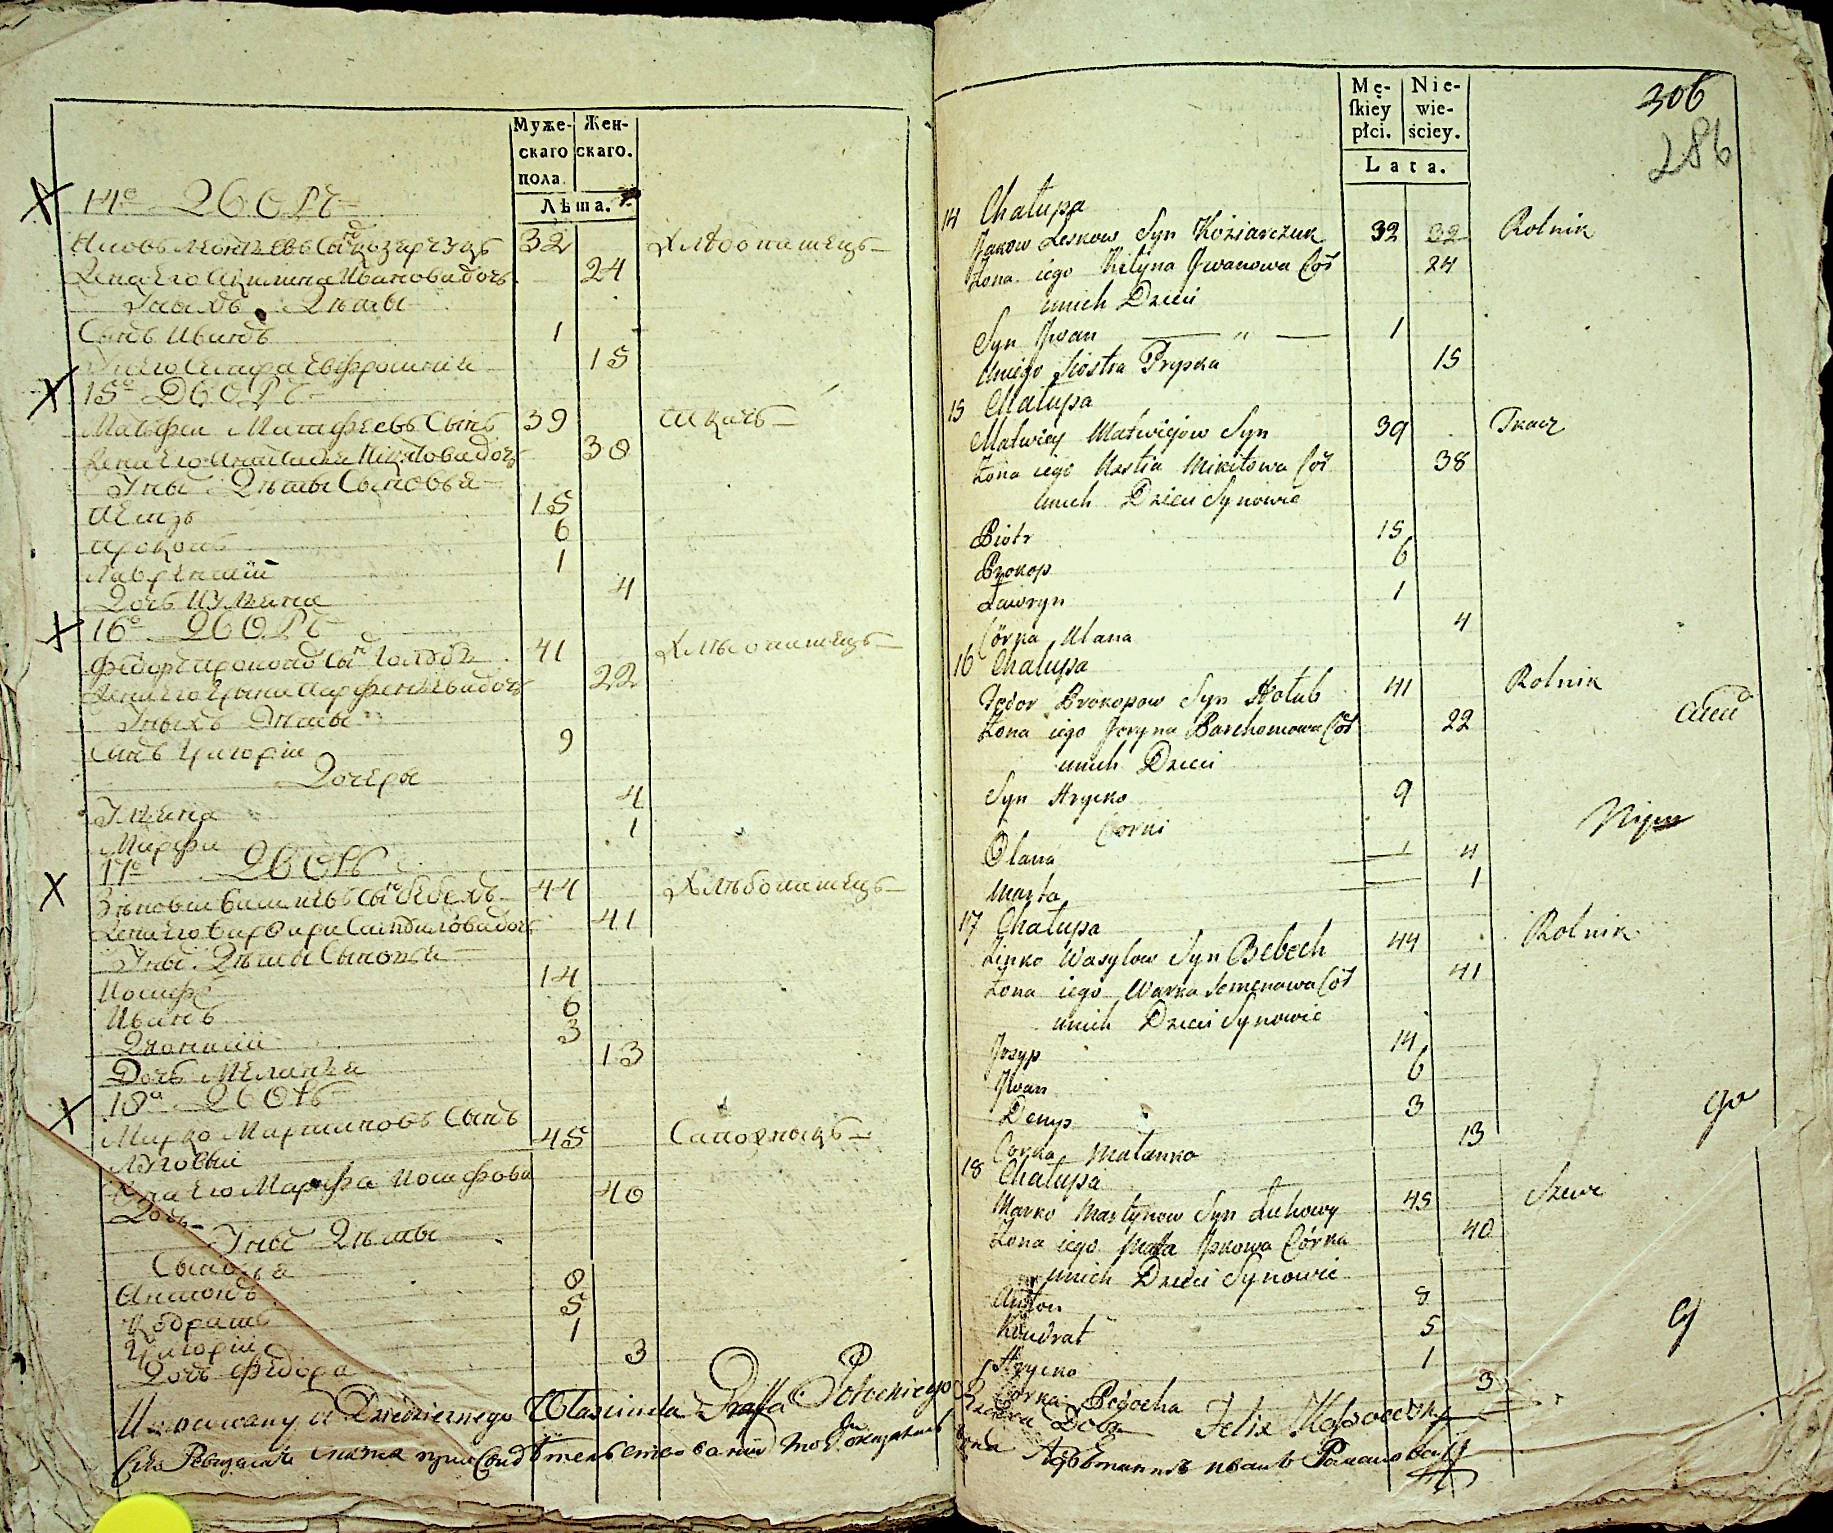 Муже-
скаго
пола.
Жен-
скаго.
Лѣта.
14е Дворъ
32 Хлѣбопашецъ
Жена его Акилина Иванова дочь 24
У ныхъ Дѣты
Сынъ Иванъ 1
У него Сестра Евфросинія 15
15е Дворъ
Матфеи Матфеевъ Сынъ 39 Ткачь
Жена его Анастасия Никитова дочь 38
У ныхъ Дѣты Сыновья
Петръ 15
Прокопъ 6
Лаврентій 1
Дочь Ульяна 4
16е Дворъ
Федоръ Прокоповъ Сынъ Голубъ 41 Хлѣбопашецъ
Жена его Ирина дочь 22
У ныхъ Дѣты
Сынъ Григорій 9
Дочеры
Ульяна 4
Марфа 1
17е Дворъ
Зѣновій Василіевъ Сынъ Бебехъ 44 Хлѣбопашецъ
Жена его Варвара дочь 41
У ныхъ Дѣты Сыновья
Иосифъ 14
Иванъ 6
Дионисій 3
Дочь Меланья 13
18е Дворъ
Марко Мартиновъ Сынъ
Луговый 45 Сапожныкъ
Жена его Марфа Иосифова
Дочь 40
У ныхъ Дѣты
Сыновья
Антонъ 8
Кодратъ 5
Григорій 1
Дочь Федора 3
Dziedzicznego Własciciela Graffa Potockiego
Męskiey
płci.
Niewieściey.
Lata.
306
286
14 Chałupa
Jakow Leskow Syn Koziarczuk 32 32 Rolnik
Żona iego Kilyna Jwanowa Cór 24
unich Dzieci
Syn Jwan — " — 1
Uniego Siostra Pryska 15
15 Chałupa
Matwiey Matwijow Syn 39 Tkacz
Żona iego Nastia Mikitowa Cór 38
Unich Dzieci Synowie
Piotr 15
Prokop 6
Ławryn 1
Córka Ulana 4
16 Chałupa
Fedor Prokopow Syn Hołub 41 Rolnik
Żona iego Jryna Parchomowa Cór 22
unich Dzieci
Syn Hrycko 9
Corki
Olana 1 4
Marta 1
17 Chałupa
Zinko Wasylow Syn Bebech 44 Rolnik
Żona iego Warka Semenowa Cór 41
unich Dzieci Synowie
Josyp 14
Jwan 6
Denys 3
Corka Małanka 13
18 Chałupa
Marko Martynow Syn Łuhowy 45 Szewc
Żona iego Marta Córka 40
unich Dzieci Synowie
Anton 8
Kondrat 5
Hrycko 1
Córka Fedocha 3
Felix